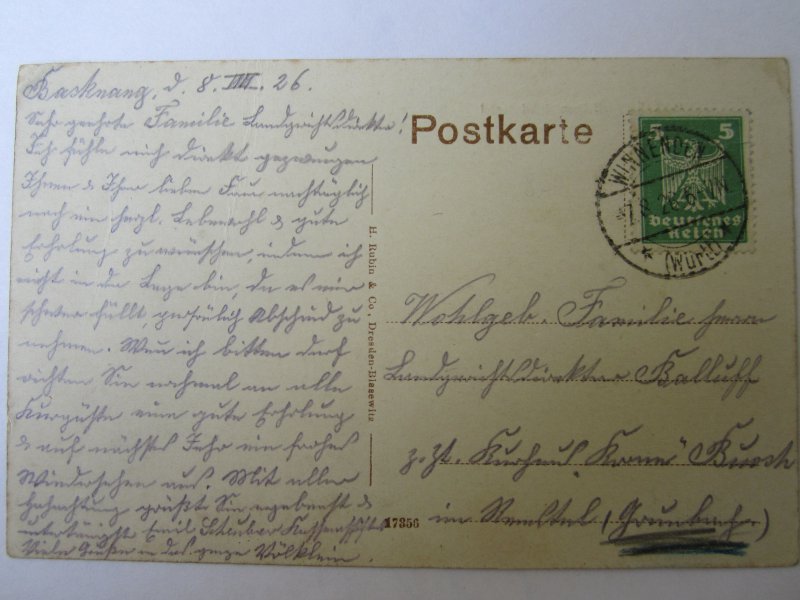 Backnang, d. 8. VIII. 26.
Sehr geehrte Familie Landgerichtsdirektor!
Ich fühle mich direkt gezwungen
Ihnen & Ihrer lieben Frau nachträglich
noch ein herzl. Lebewohl & gute
Erholung zu wünschen, indem ich
nicht in der Lage bin, da es mir
schwer fällt, persönlich Abschied zu
nehmen. Wenn ich bitten darf
richten Sie nochmal an alle
Kurgäste eine gute Erholung
& auf nächstes Jahr ein frohes
Wiedersehen aus. Mit aller
Hochachtung grüßt Sie ergebenst &
Emil
Viele Grüße an das ganze Völklein.
H. Rubin & Co., Dresden-Blasewitz
17356
Postkarte
5 5
Deutsches
Reich
WINNENDEN
(WÜRTT.)
Wohlgeb. Familie Herrn
Landgerichtsdirektor Balluff
z. Zt. Kurhaus "Krone"
im Remstal (Grunbach)